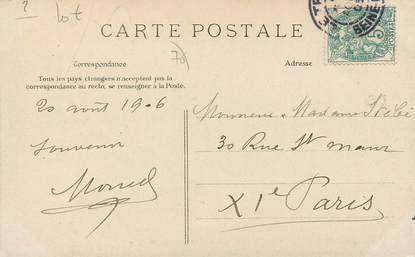 lot
CARTE POSTALE
Correspondance
Adresse
Tous les pays étrangers n'acceptent pas la
correspondance au recto, se renseigner à la Poste.
20 août 1906
Souvenir
Monsieur & Madame
30 Rue St Maur
XIe Paris